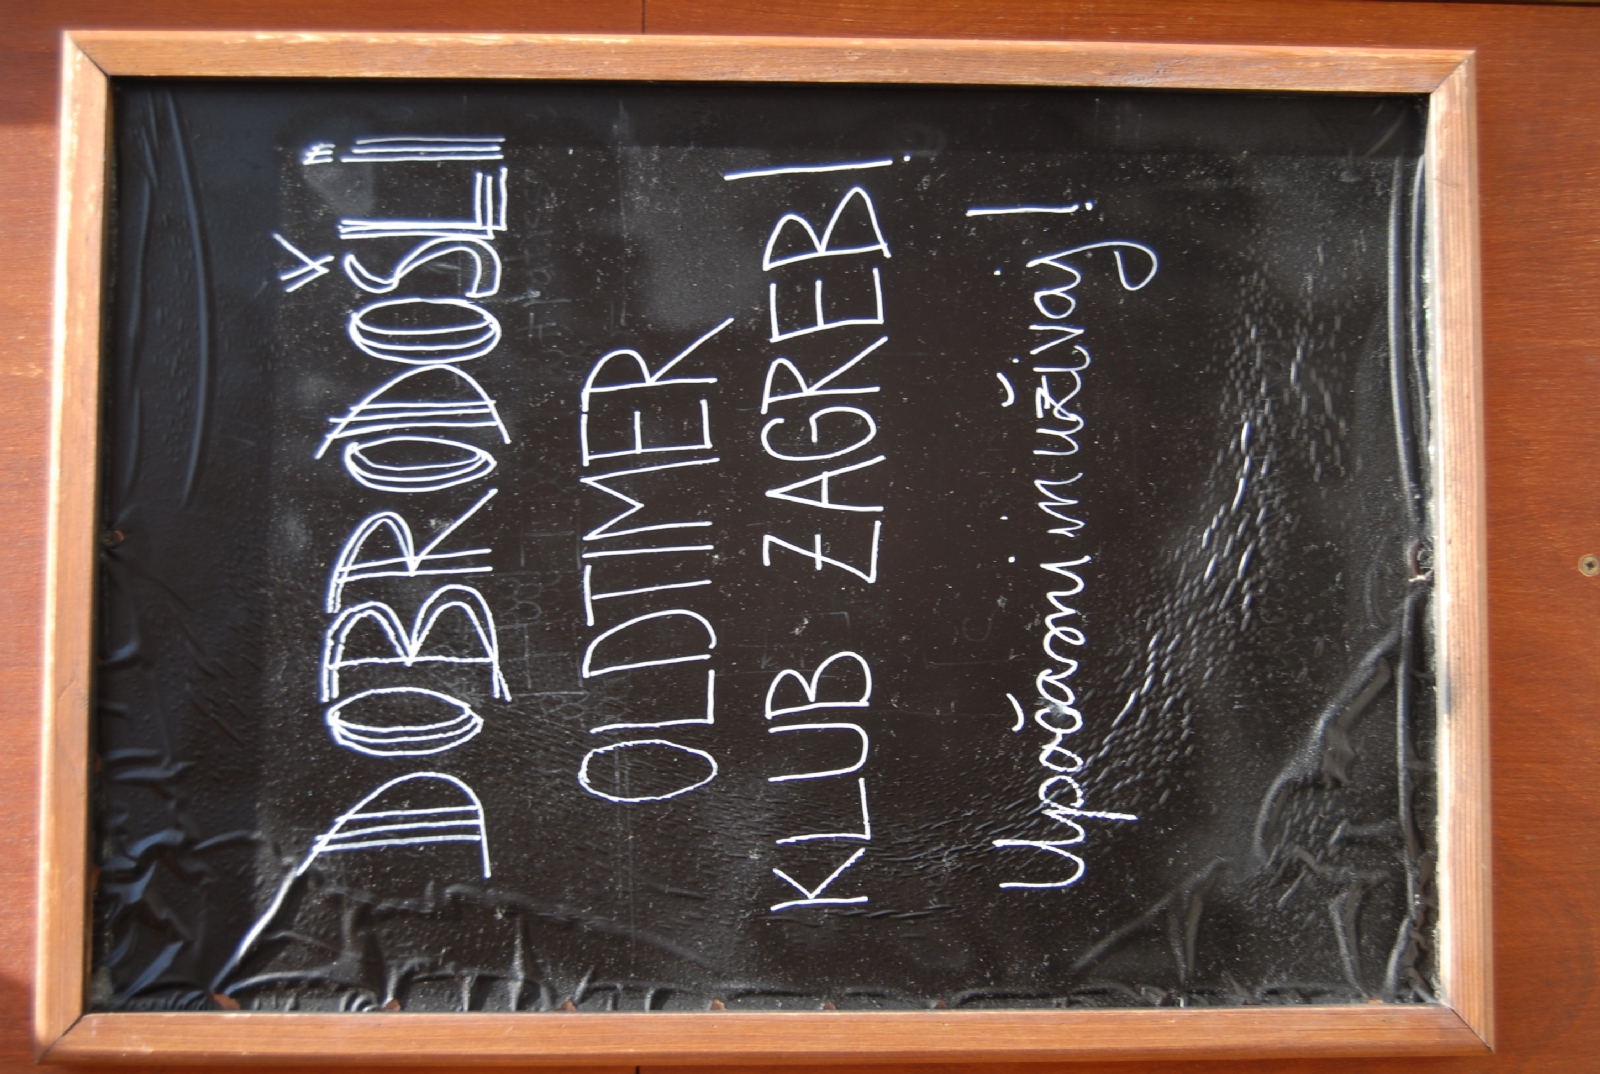 DOBRODOŠLI
OLDTIMER
KLUB ZAGREB!
Upočani muživaj!